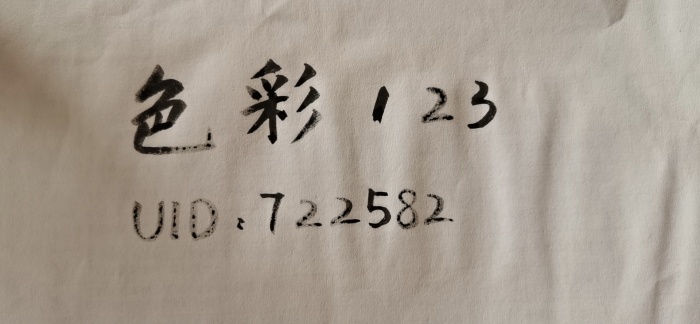 色彩123
UID:722582